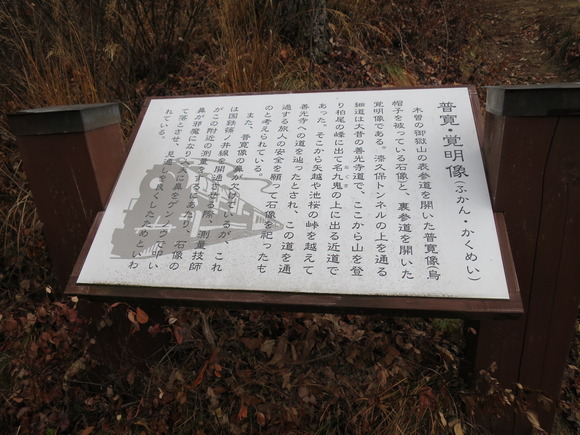 普寛・覚明像（ふかん・かくめい）
木曽の御嶽山の表参道を開いた普寛像、烏
帽子を被っている石像と、裏参道を開いた
覚明像である。漆久保トンネルの上を通る
細道は大昔の善光寺道で、ここから山を登
り柏尾の峰に出て名九鬼の上に出る近道で
あった。そこから矢越や池桜の峠を越えて
善光寺への道を辿ったとされ、この道を通
過する旅人の安全を願って石像を祀ったも
のと考えられている。
また、普寛像の鼻が欠けているが、これ
は国鉄篠ノ井線を開通させる際、測量技師
がこの附近の測量をするにあたり、石像の
鼻が邪魔になり
は鼻をゲンノウで叩い
て落とさせ、見通しを良くしたためといわ
れている。